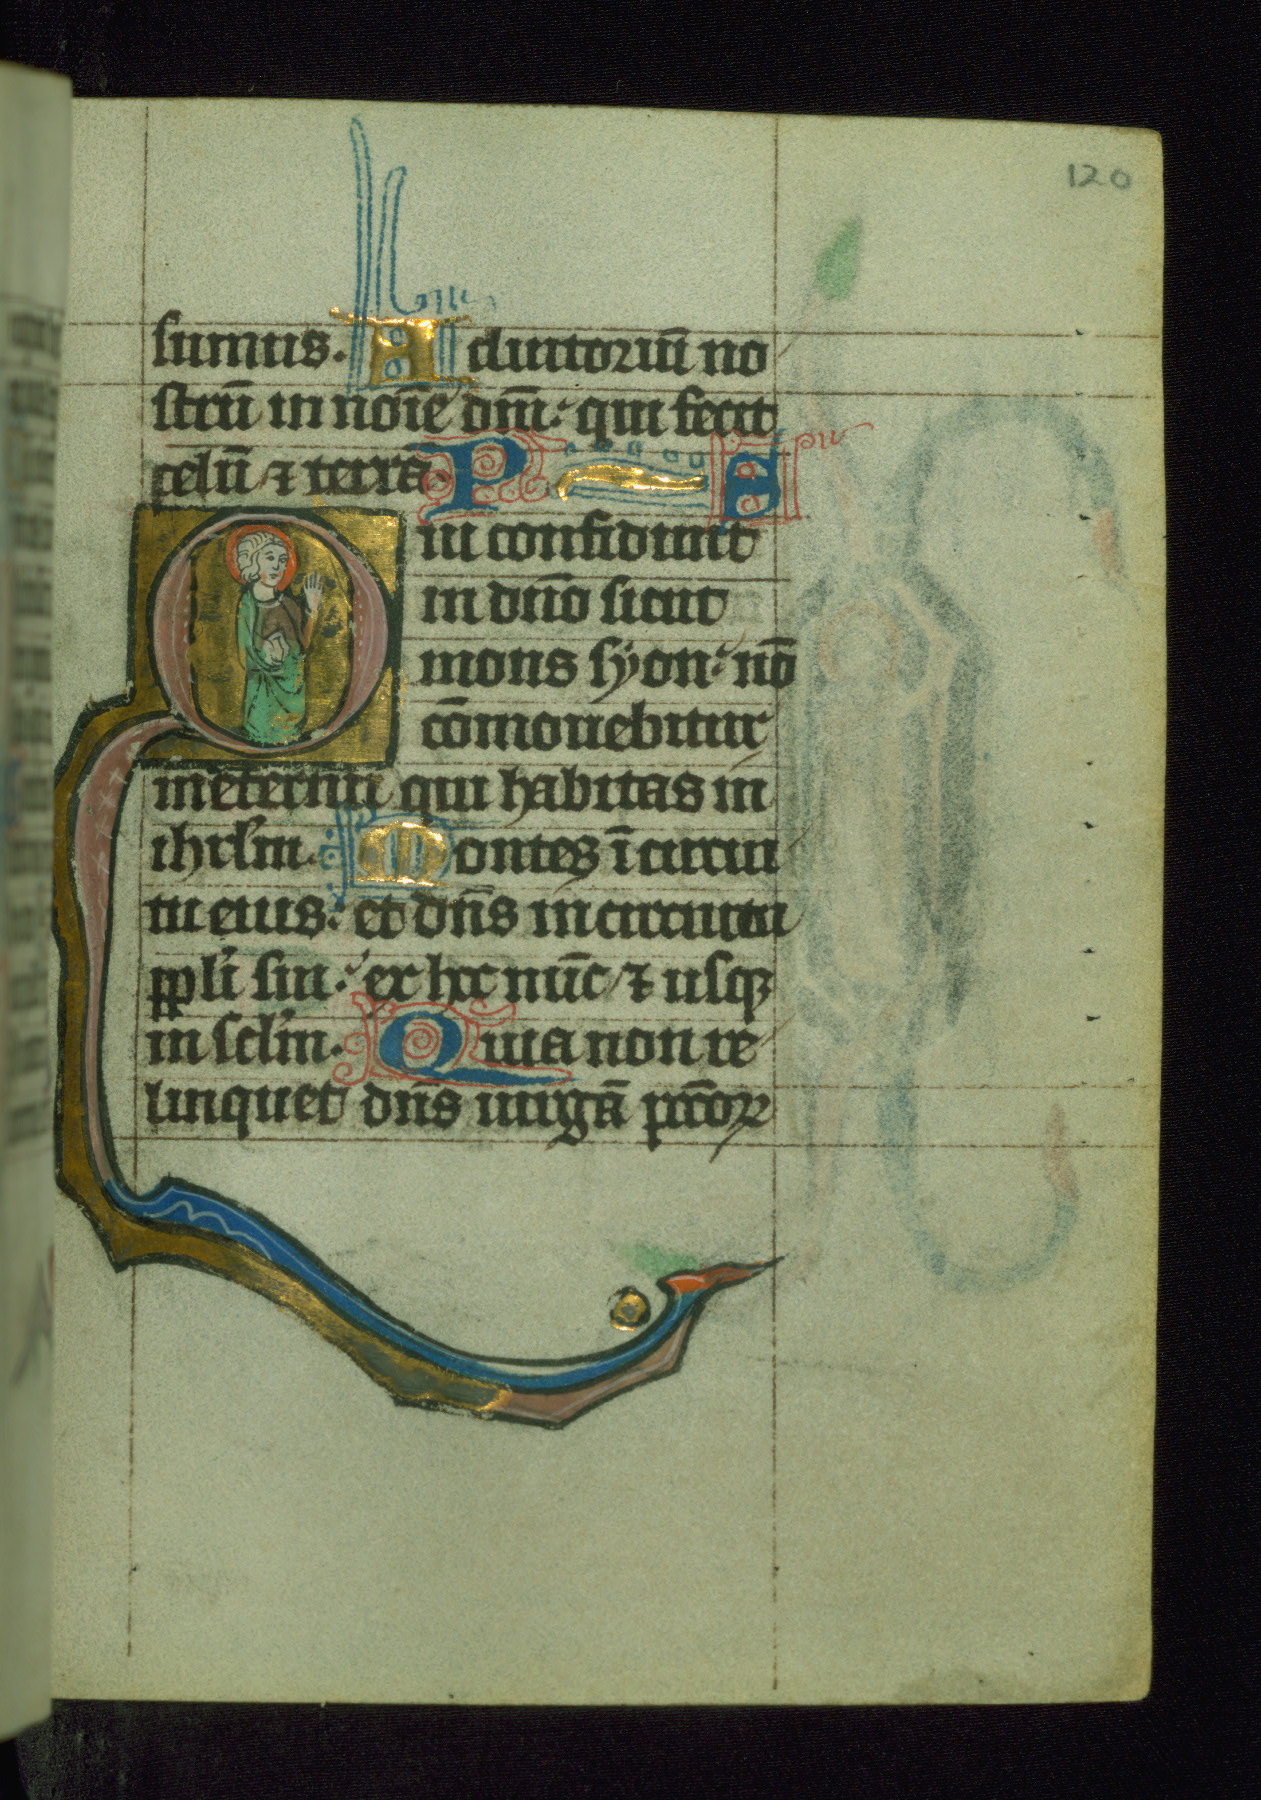 120
sumus. Adiutoriū no
strū in noīe dn̄i. qui fecit
celū ⁊ terrā. P A
Qui confidunt
in dn̄o sicut
mons syon. nō
cōmouebitur
in eternū qui habitat in
ihrl̄m. Montes ī circui
tu eius. et dn̄s in circuitu
ppl̄i sui. ex hoc nūc ⁊ usq
in scl̄m. Quia non re
linquet dn̄s uirgā pct̄oꝝ